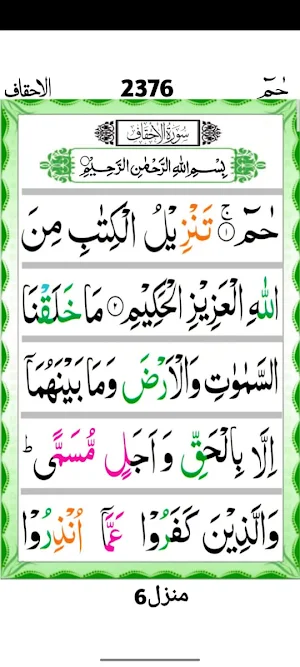 حٰمٓ 2376 الاحقاف
سُوْرَةُ الْاَحْقَافِ
بِسْمِ اللّٰهِ الرَّحْمٰنِ الرَّحِيْمِ
حٰمٓ ۚ‏﴿۱﴾ تَنْزِيْلُ الْكِتٰبِ مِنَ
اللّٰهِ الْعَزِيْزِ الْحَكِيْمِ ﴿۲﴾ مَا خَلَقْنَا
السَّمٰوٰتِ وَالْاَرْضَ وَمَا بَيْنَهُمَاۤ
اِلَّا بِالْحَقِّ وَ اَجَلٍ مُّسَمًّى ؕ
وَالَّذِيْنَ كَفَرُوْا عَمَّاۤ اُنْذِرُوْا
منزل 6